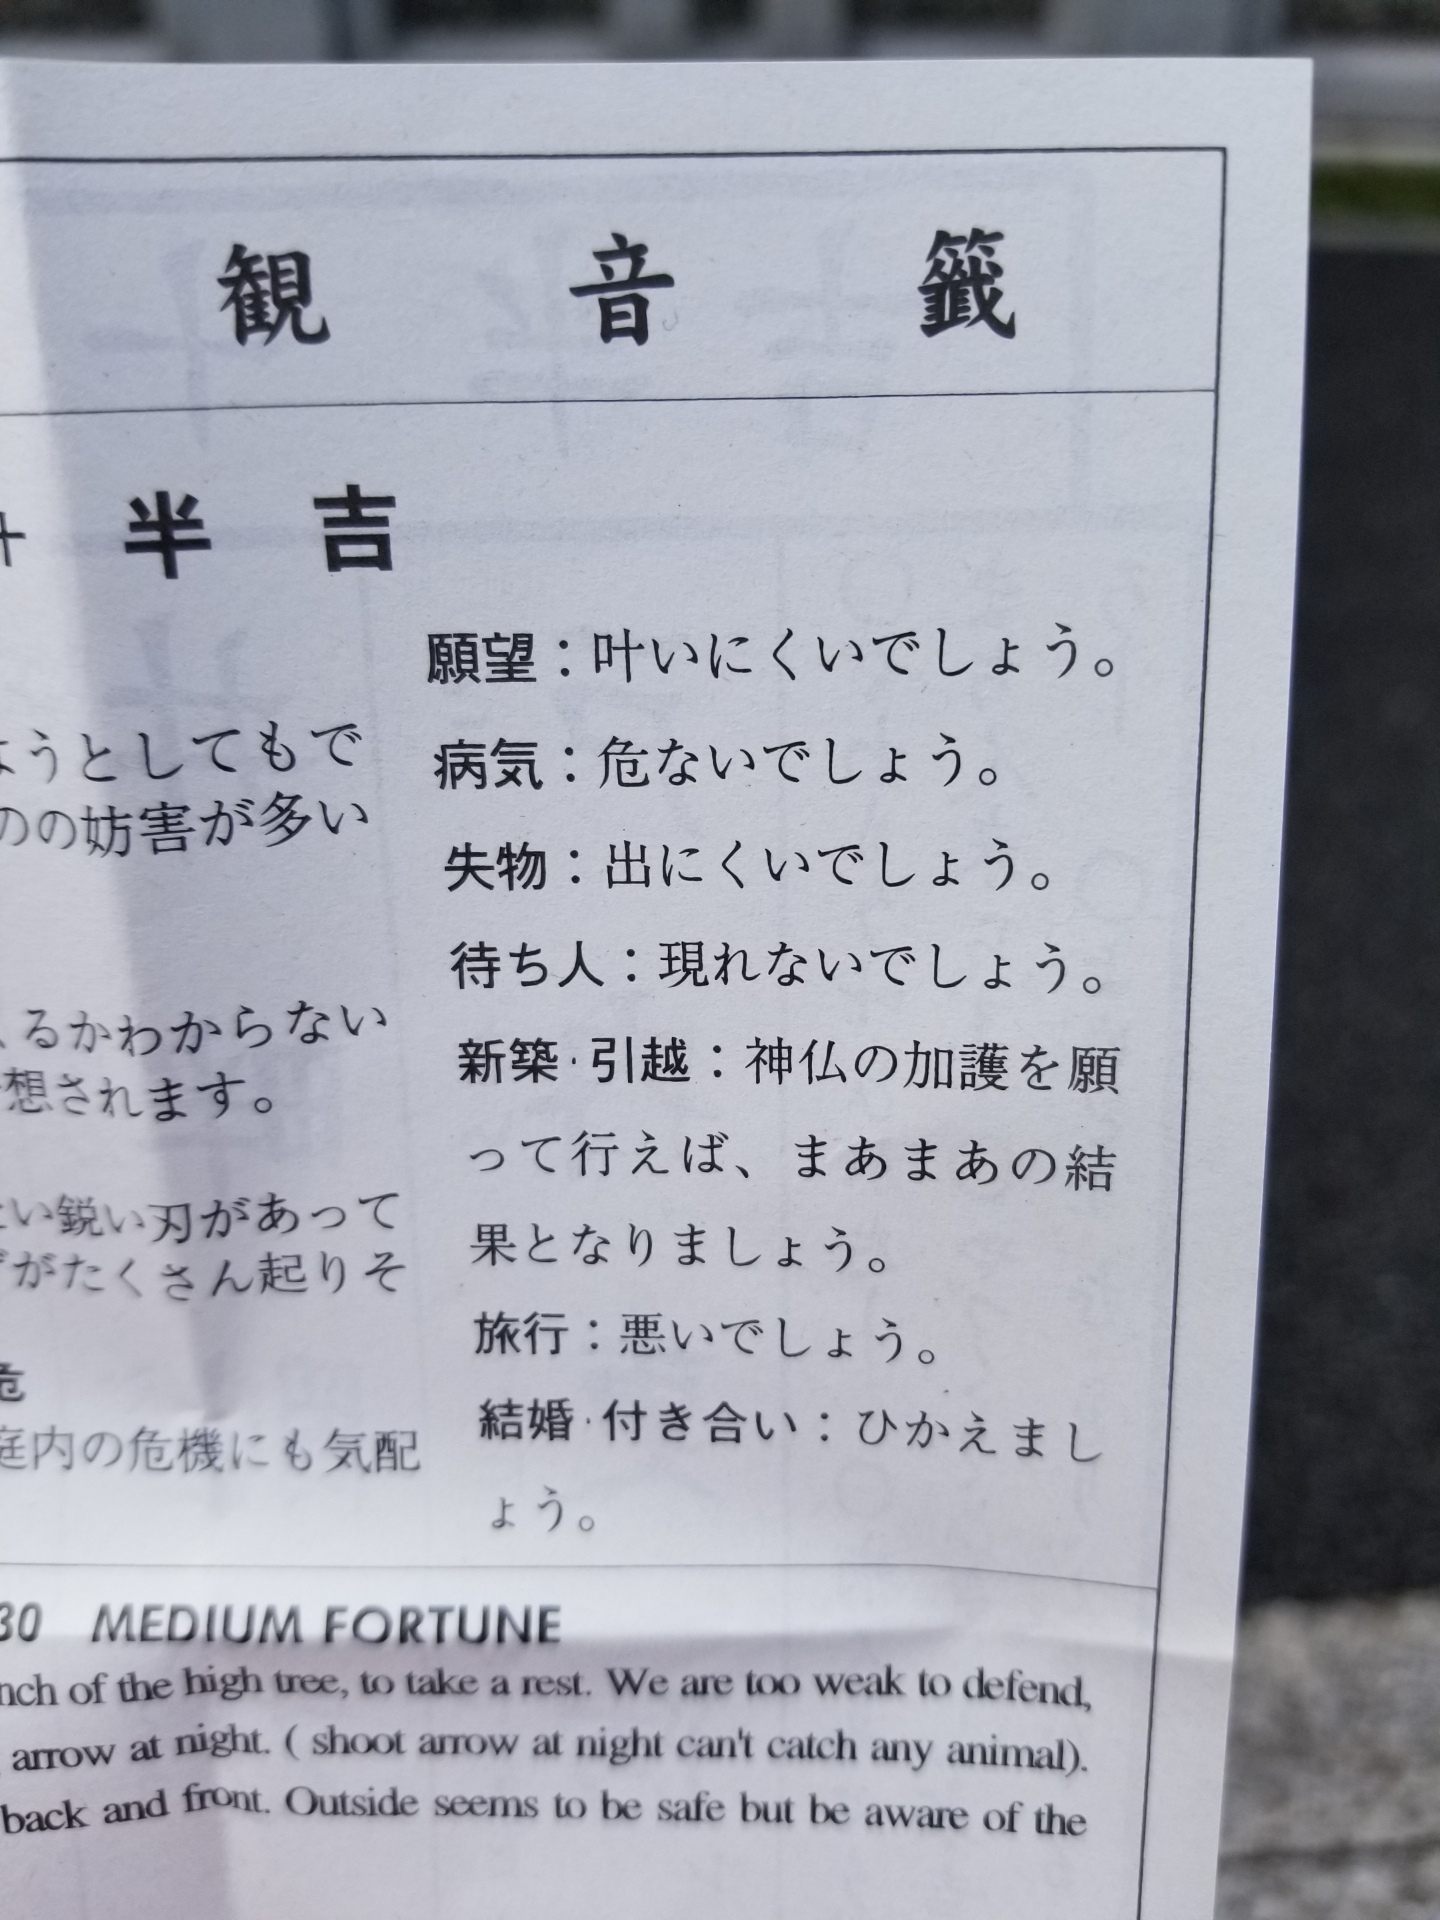 観音籤
半吉
願望：叶いにくいでしょう。
病気：危ないでしょう。
失物：出にくいでしょう。
待ち人：現れないでしょう。
新築·引越：神仏の加護を願
って行えば、まあまあの結
果となりましょう。
旅行：悪いでしょう。
結婚·付き合い：ひかえまし
ょう。
ようとしてもで
のの妨害が多い
るかわからない
想されます。
い鋭い刃があって
がたくさん起りそ
危
庭内の危機にも気配
30 MEDIUM FORTUNE
nch of the high tree, to take a rest. We are too weak to defend,
arrow at night. ( shoot arrow at night can't catch any animal).
back and front. Outside seems to be safe but be aware of the